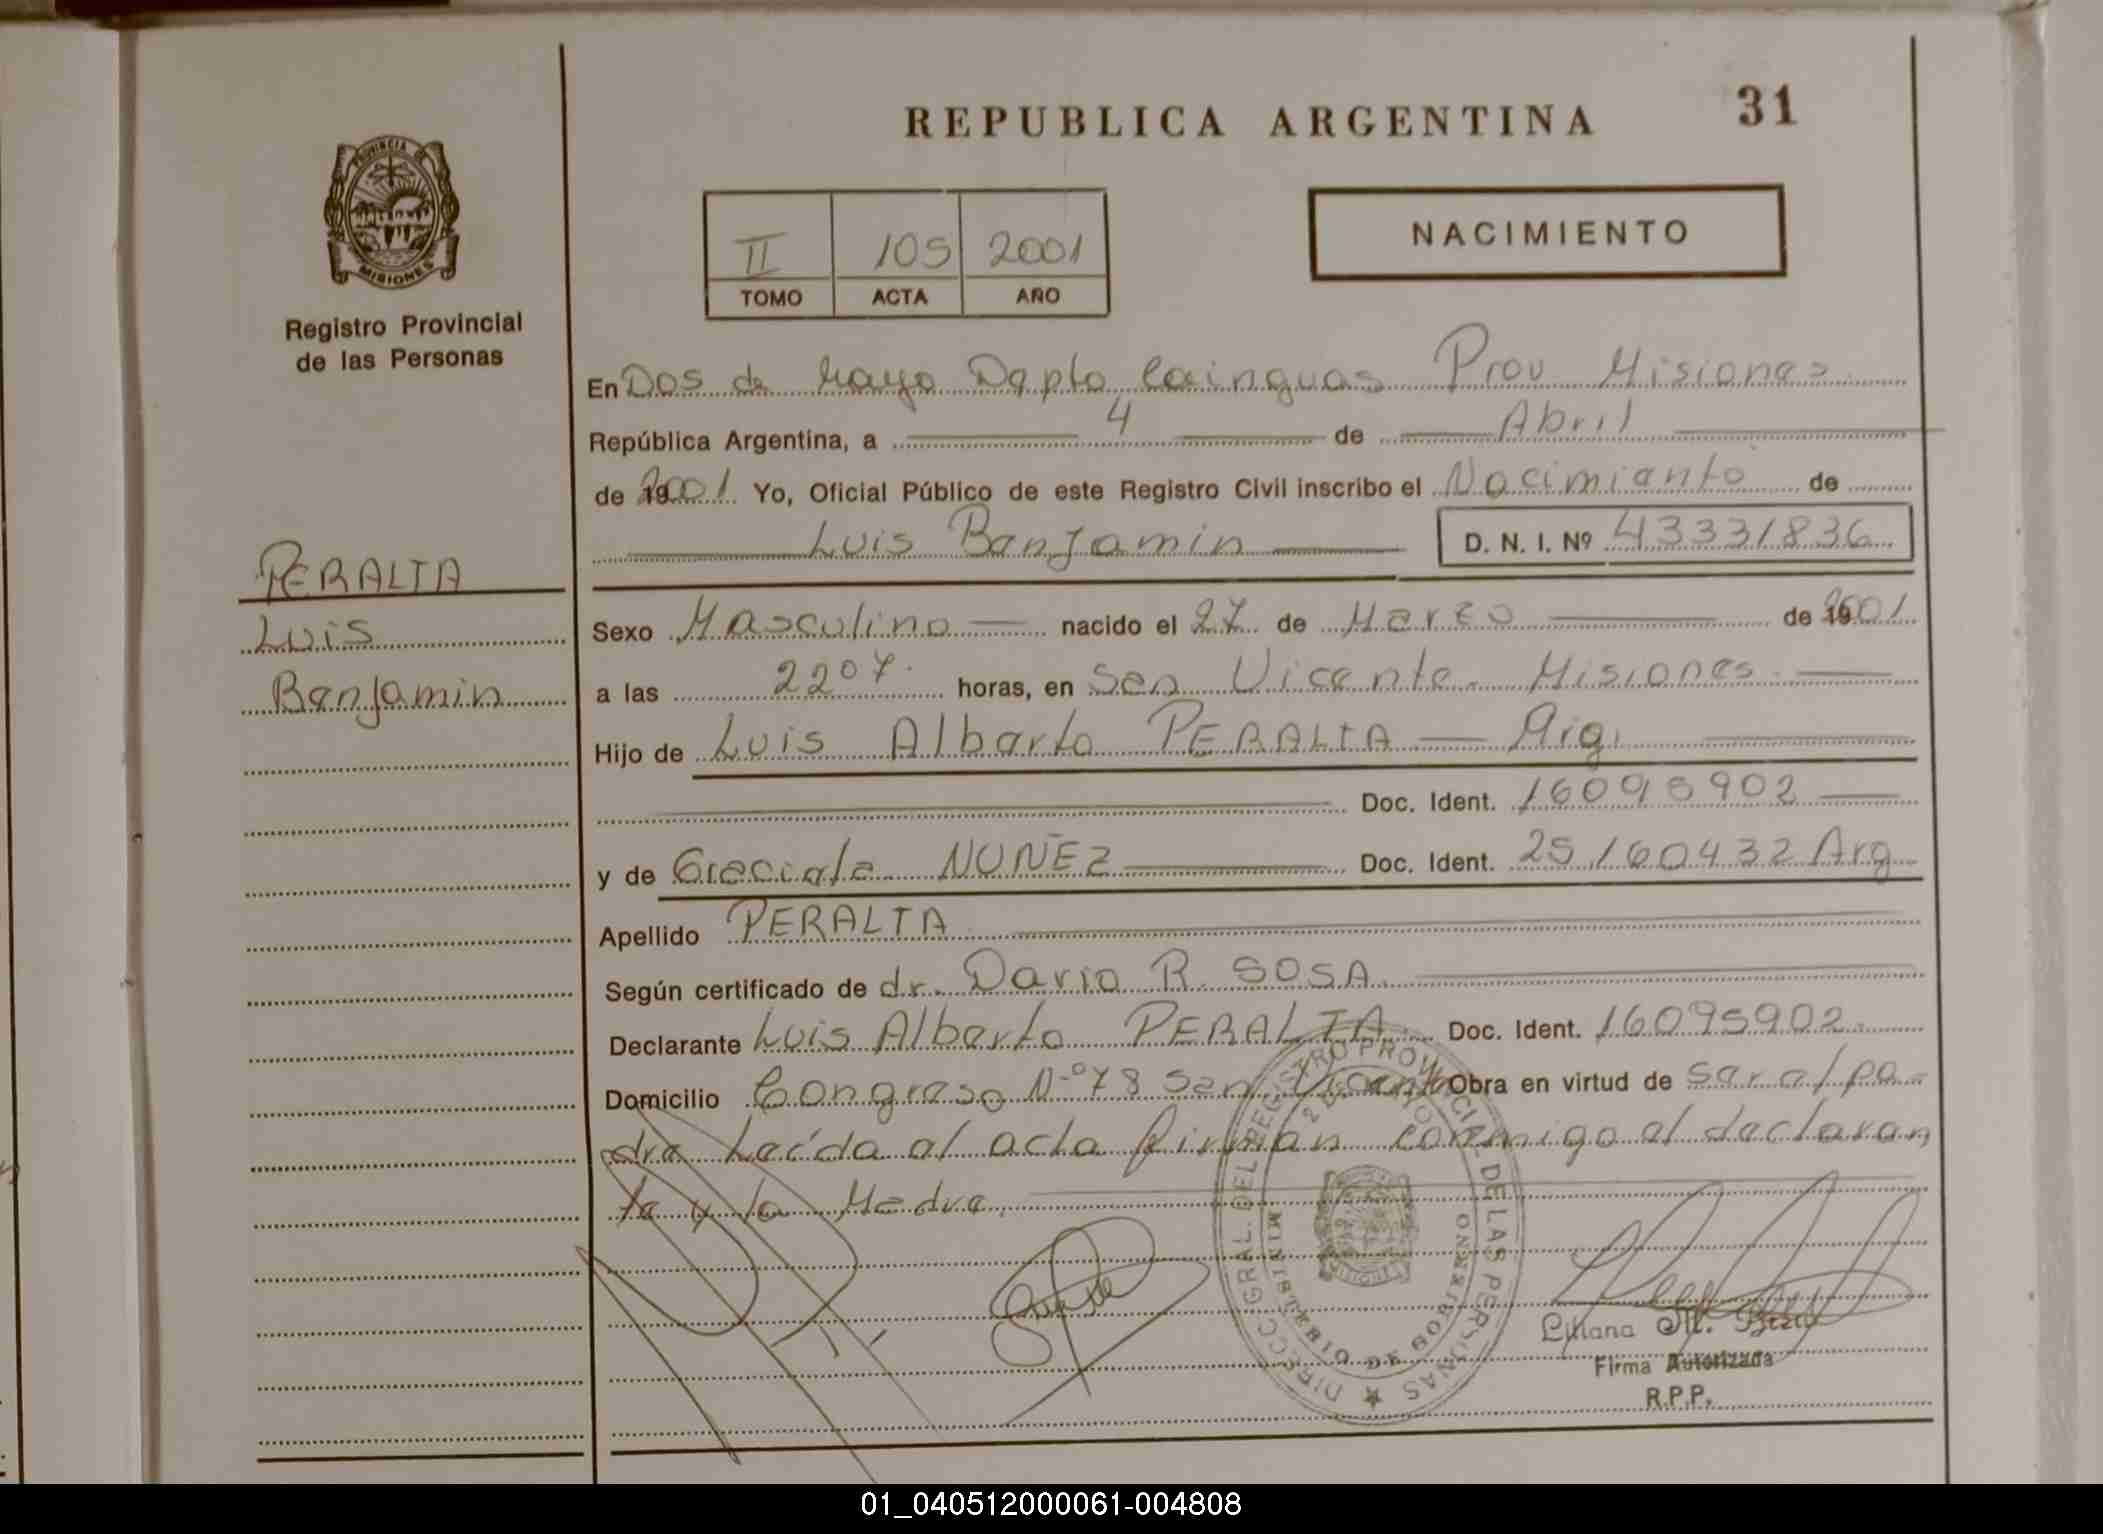 REPUBLICA ARGENTINA
31
PROVINCIA DE MISIONES
Registro Provincial
de las Personas
II 105 2001
TOMO ACTA AÑO
NACIMIENTO
En Dos de Mayo Depto Cainguas Prov Misiones
República Argentina, a 4 de Abril
de 2001 Yo, Oficial Público de este Registro Civil inscribo el Nacimiento de
Luis Benjamin D. N. I. Nº 43331836
PERALTA
Luis
Benjamin
Sexo Masculino nacido el 27 de Marzo de 2001
a las 22 07 horas, en San Vicente. Misiones
Hijo de Luis Alberto PERALTA Arg.
Doc. Ident. 16095902
y de Graciela NUÑEZ Doc. Ident. 25160432 Arg
Apellido PERALTA
Según certificado de dr. Dario R. SOSA.
Declarante Luis Alberto PERALTA. Doc. Ident. 16095902
Domicilio Congreso Nº 78 San Vicente Obra en virtud de ser el pa-
dre Leída el acta firman conmigo el declaran
te y la Madre.
DIRECC. GRAL. DEL REGISTRO PROVINCIAL DE LAS PERSONAS
2 DE MAYO
MINISTERIO DE GOBIERNO
Liliana M.
Firma Autorizada
R.P.P.
01_040512000061-004808